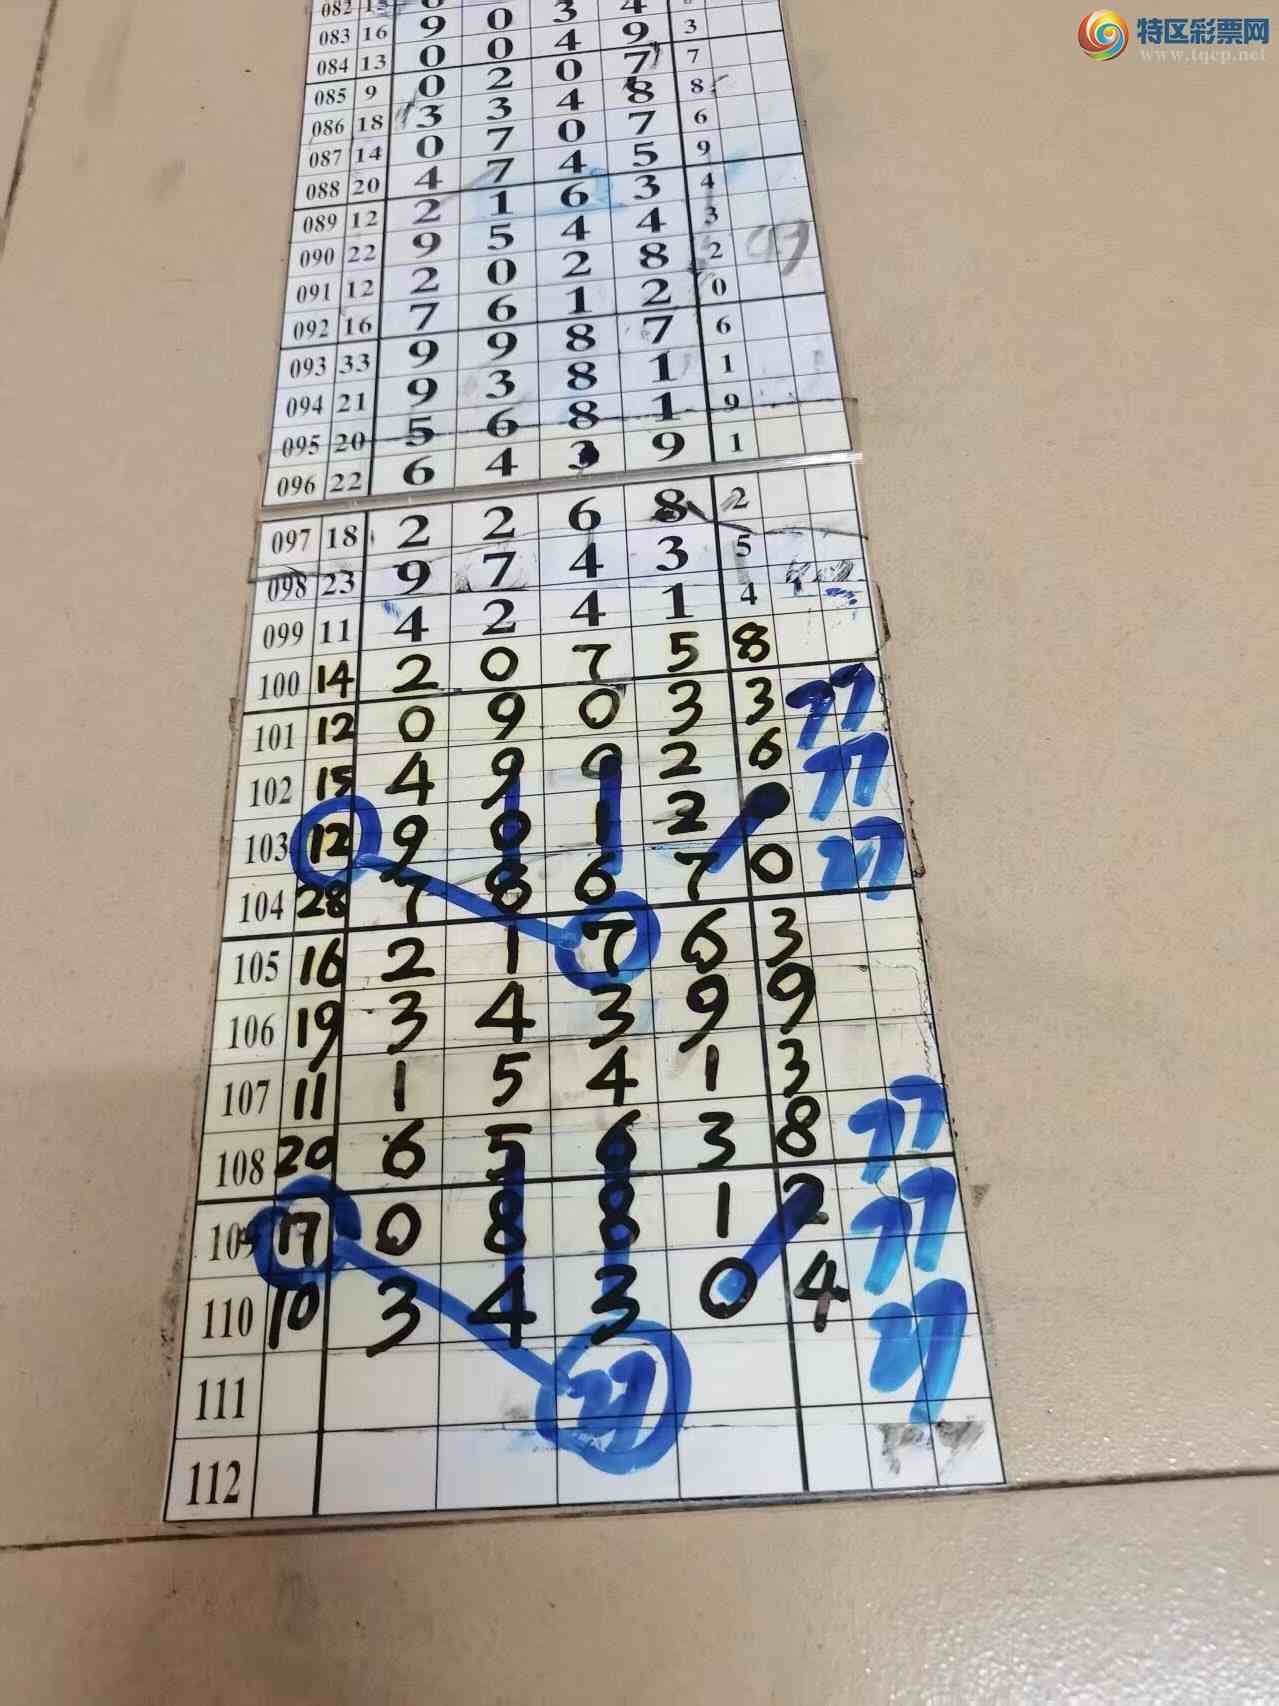 特区彩票网
www.tqcp.net
082 15 3 4
083 16 9 0 4 9 3
084 13 0 0 0 7 7
085 9 0 2 4 8 8
086 18 3 3 0 7 6
087 14 0 7 4 5 9
088 20 4 7 6 3 4
089 12 2 1 4 4 3
090 22 9 5 2 8 2
091 12 2 0 1 2 0
092 16 7 6 8 7 6
093 33 9 9 8 1 1
094 21 9 3 8 1 9
095 20 5 6 3 9 1
096 22 6 4
097 18 2 2 6 8 2
098 23 9 7 4 3 5
099 11 4 2 4 1 4
100 14 2 0 7 5 8
101 12 0 9 0 3 3 77
102 15 4 9 0 2 6 77
103 12 9 0 1 2 27
104 28 7 8 6 7 0
105 16 2 1 7 6 3
106 19 3 4 3 9 9
107 11 1 5 4 1 3
108 20 6 5 6 3 8 77
109 17 0 8 8 1 2 77
110 10 3 4 3 0 4 27
111 27
112